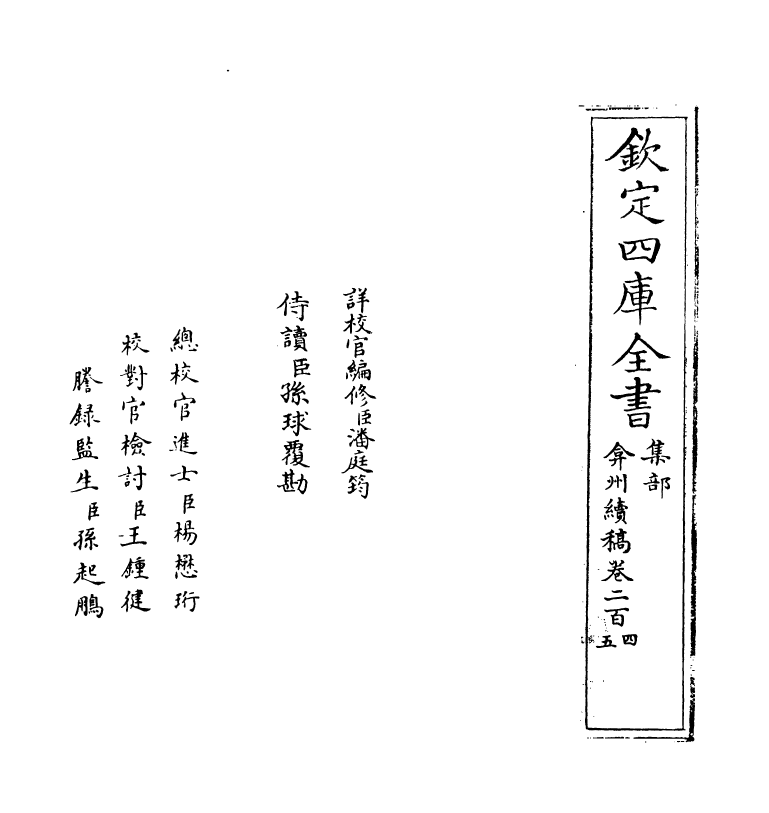 欽定四庫全書
集部
弇州續稿卷二百四
五
詳校官編修臣潘庭筠
侍讀臣孫球覆勘
總校官進士臣楊懋珩
校對官檢討臣王鍾健
謄錄監生臣孫起鵬